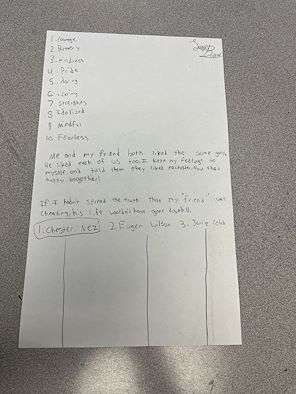 1. Courage
2. Bravery
3. Kindness
4. Pride
5. daring
6. caring
7. strengths
8 Idolized
9 mindful
10. Fearless
Me and my friend both liked the same guy.
He liked each of us too. I kept my feelings to
myself and told them they liked eachother. Now they
happy together!
If I hadn't spread the truth that my "friend" was
cheating, his life wouldn't have gone downhill.
1. Chester Nez 2. Eugen Wilson 3. Jerrie Cobb